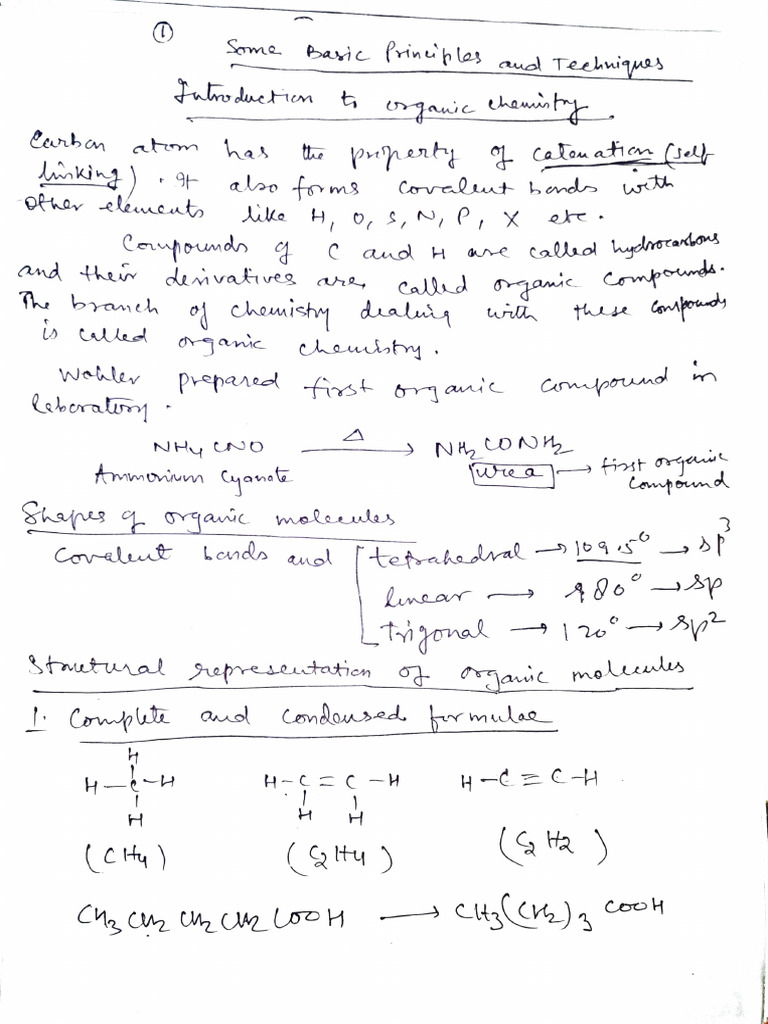 ①
Some Basic Principles and Techniques
Introduction to organic chemistry.
Carbon atom has the property of catenation (self
linking). It also forms covalent bonds with
other elements like H, O, S, N, P, X etc.
Compounds of C and H are called hydrocarbons
and their derivatives are called organic compounds.
The branch of chemistry dealing with these compounds
is called organic chemistry.
Wohler prepared first organic compound in
leboratory.
NH4 CNO —Δ→ NH2CONH2
Ammonium Cyanate urea → first organic
compound
Shapes of organic molecules
Covalent bonds and tetrahedral → 109.5° → sp3
linear → 180° → sp
Trigonal → 120° → sp2
Structural representation of organic molecules
1. Complete and condensed formulae
H
H-C-H H-C=C-H H-C≡C-H
H H H
(CH4) (C2H4) (C2H2)
CH3 CH2 CH2 CH2 COOH → CH3(CH2)3 COOH